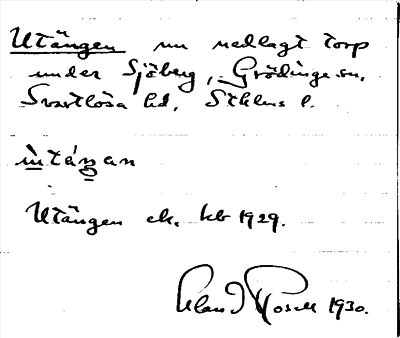 Utängen nu nedlagt torp
under Sjöberg, Grödinge sn,
Svartlösa hd, Sthlms l.
ùtáŋan
Utängen ek. kb 1929.
Rosell 1930.